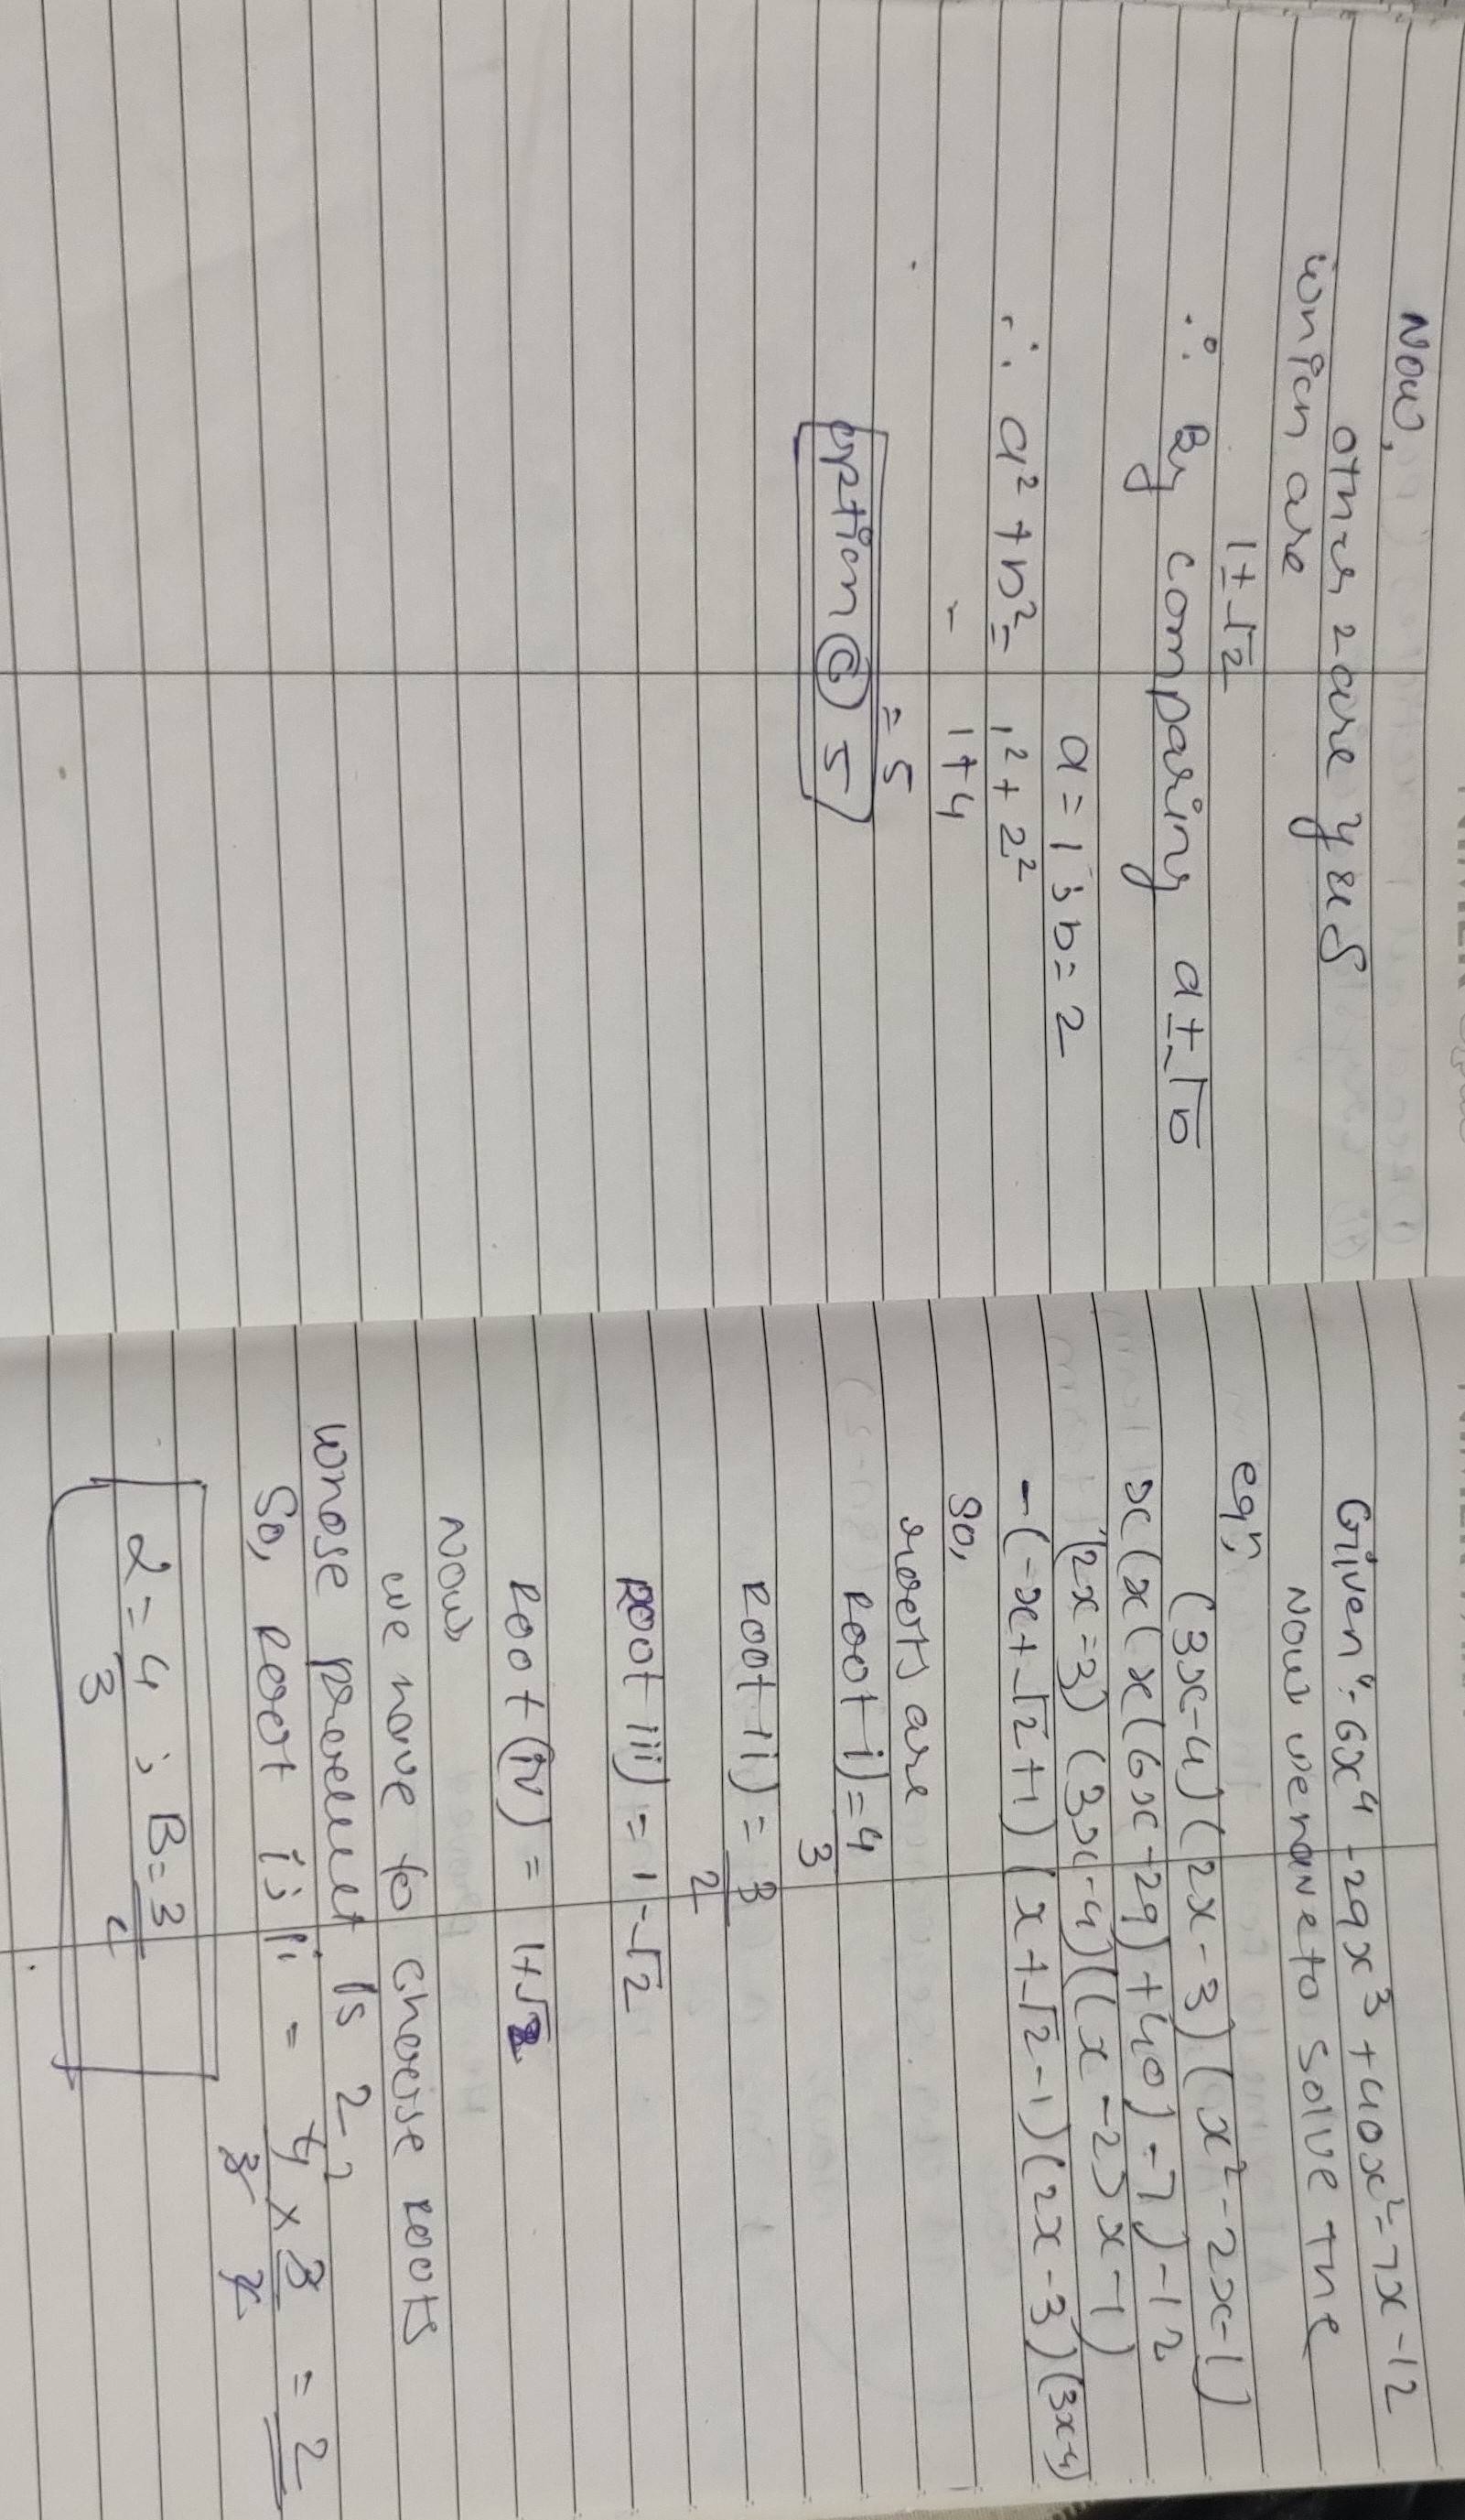 Given:- 6x⁴ - 29x³ + 40x² - 7x - 12
Now we have to solve the
eqⁿ;
(3x-4)(2x-3)(x²-2x-1)
x(x(x(6x-29)+40)-7)-12
(2x=3)(3x-4)(x-2)x-1)
-(-x+√2+1)(x+√2-1)(2x-3)(3x-4)
So,
roots are
Root i) = 4/3
Root ii) = 3/2
Root iii) = 1-√2
Root (iv) = 1+√2
Now
we have to choose roots
whose product is 2
So, Root i, ii = 4/3 × 3/2 = 2
α = 4/3 ; B = 3/2
Now,
other 2 are γ & δ
which are
1±√2
∴ By comparing a±√b
a = 1 ; b = 2
∴ a² + b² = 1² + 2²
1+4
= 5
option C 5